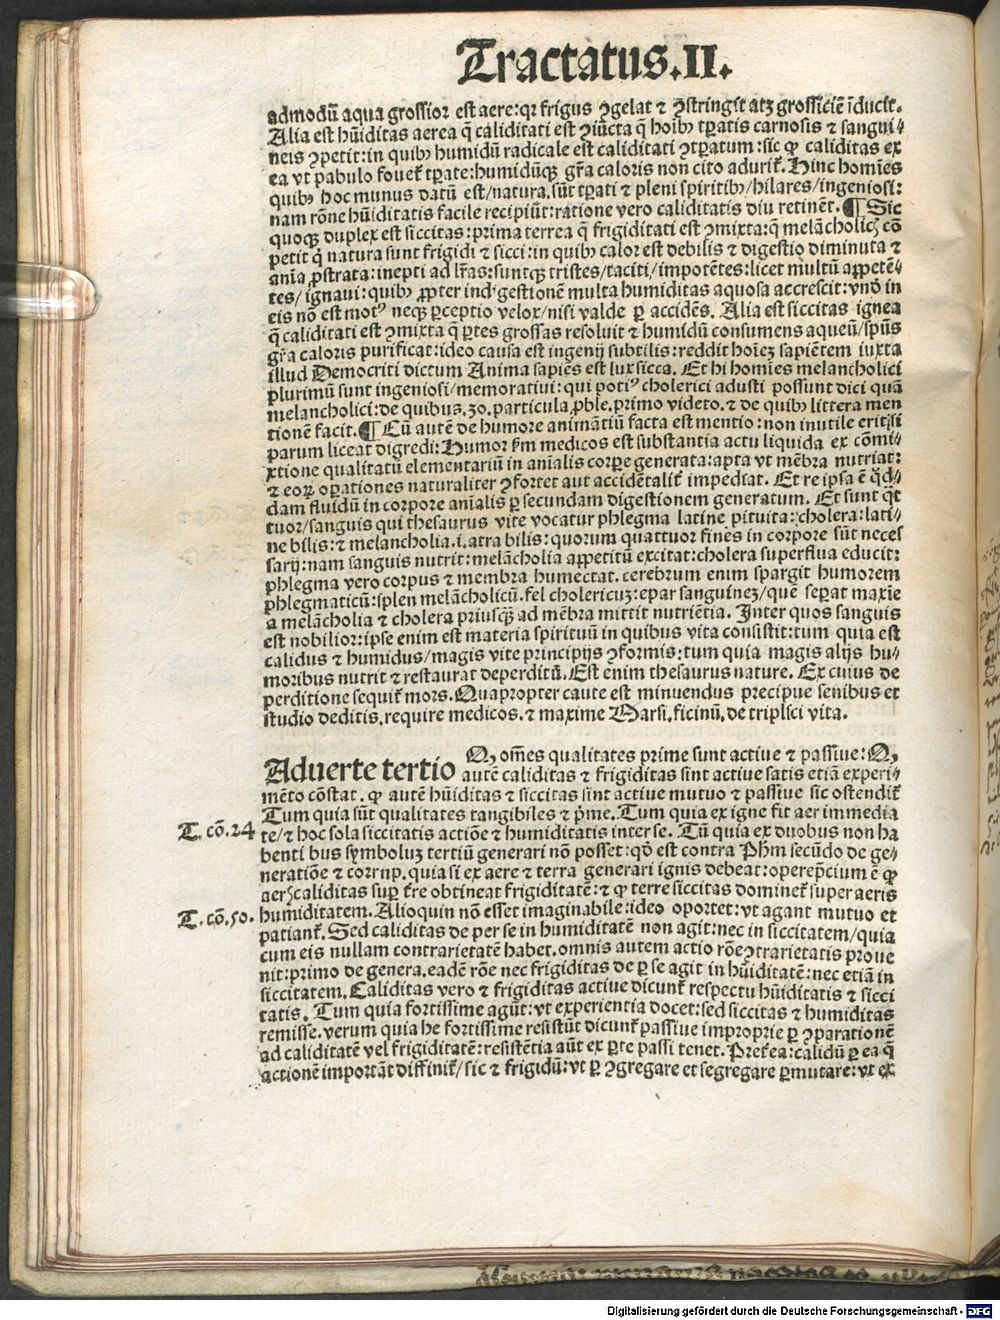 Tractatus.II.
admodũ aqua grossior est aere:qꝛ frigus ꝯgelat ⁊ ꝯstringit atqꝫ grossiciẽ ĩducit.
Alia est hũiditas aerea q̃ caliditati est ꝯiũcta q̃ hoĩbꝰ tꝑatis carnosis ⁊ sangui⸗
neis ꝯpetit:in quibꝰ humidũ radicale est caliditati ꝯtꝑatum:sic ꝙ caliditas ex
ea vt pabulo fouet̃ tꝑate:humidũqꝫ gr̃a caloris non cito adurit̃. Hinc homĩes
quibꝰ hoc munus datũ est/natura.sũt tꝑati ⁊ pleni spiritibꝰ/hilares/ingeniosi:
nam rõne hũiditatis facile recipiũt:ratione vero caliditatis diu retinẽt.¶ Sic
quoqꝫ duplex est siccitas:prima terrea q̃ frigiditati est ꝯmixta:q̃ melãcholicꝭ cõ
petit q̃ natura sunt frigidi ⁊ sicci:in quibꝰ calor est debilis ⁊ digestio diminuta ⁊
anĩa ꝓstrata:inepti ad lr̃as:suntqꝫ tristes/taciti/impotẽtes:licet multũ appetẽ⸗
tes/ ignaui:quibꝰ ꝓpter indigestionẽ multa humiditas aquosa accrescit:vnõ in
eis nõ est motꝰ neqꝫ ꝑceptio velox/nisi valde ꝑ accidẽs. Alia est siccitas ignea
q̃ caliditati est ꝯmixta q̃ ꝑtes grossas resoluit ⁊ humidũ consumens aqueũ/spũs
gr̃a caloris purificat:ideo causa est ingenij subtilis:reddit hoĩeꝫ sapiẽtem iuxta
illud Democriti dictum Anima sapiẽs est lux sicca. Et hi homĩes melancholici
plurimũ sunt ingeniosi/memoratiui:qui potiꝰ cholerici adusti possunt dici quã
melancholici:de quibus.30.particula ꝓble.primo videto.⁊ de quibꝰ littera men
tionẽ facit.¶ Cũ autẽ de humore animãtiũ facta est mentio:non inutile erit:si
parum liceat digredi:Humor ẜm medicos est substantia actu liquida ex cõmi⸗
xtione qualitatũ elementariũ in anĩalis corꝑe generata:apta vt mẽbra nutriat:
⁊ eoꝝ oꝑationes naturaliter ꝯfortet aut accidẽtalit̃ impediat. Et re ipsa ẽ q̃d⸗
dam fluidũ in corpore anĩalis ꝑ secundam digestionem generatum. Et sunt q̃t
tuor/sanguis qui thesaurus vite vocatur phlegma latine pituita:cholera:lati⸗
ne bilis:⁊ melancholia.i.atra bilis:quorum quattuor fines in corpore sũt neces
sarij:nam sanguis nutrit:melãcholia appetitũ excitat:cholera superflua educit:
phlegma vero corpus ⁊ membra humectat.cerebrum enim spargit humorem
phlegmaticũ:splen melãcholicũ.fel cholericuꝫ:epar sanguineꝫ/quẽ seꝑat maxĩe
a melãcholia ⁊ cholera priusqꝫ̃ ad mẽbra mittit nutriẽtia. Inter quos sanguis
est nobilior:ipse enim est materia spirituũ in quibus vita consistit:tum quia est
calidus ⁊ humidus/magis vite principijs ꝯformis:tum quia magis alijs hu⸗
moribus nutrit ⁊ restaurat deperditũ.Est enim thesaurus nature. Ex cuius de
perditione sequit̃ mors.Quapropter caute est minuendus precipue senibus et
studio deditis.require medicos.⁊ maxime Marsi.ficinũ.de triplici vita.
Aduerte tertio Qꝫ om̃es qualitates prime sunt actiue ⁊ passiue:Qꝫ
autẽ caliditas ⁊ frigiditas sint actiue satis etiã experi⸗
mẽto cõstat. ꝙ autẽ hũiditas ⁊ siccitas sint actiue mutuo ⁊ passiue sic ostendit̃
Tum quia sũt qualitates tangibiles ⁊ p̃me. Tum quia ex igne fit aer immedia
T. cõ.24 te/⁊ hoc sola siccitatis actiõe ⁊ humiditatis inter se. Tũ quia ex duobus non ha
benti bus symboluꝫ tertiũ generari nõ posset:qd̃ est contra Ph̃m secũdo de ge⸗
neratiõe ⁊ corrup.quia si ex aere ⁊ terra generari ignis debeat:operep̃cium ẽ ꝙ
aerꝭ caliditas suꝑ t̃re obtineat frigiditatẽ:⁊ ꝙ terre siccitas dominet̃ super aeris
T. cõ.50. humiditatem.Alioquin nõ esset imaginabile:ideo oportet:vt agant mutuo et
patiant̃. Sed caliditas de per se in humiditatẽ non agit:nec in siccitatem/quia
cum eis nullam contrarietatẽ habet.omnis autem actio rõe ꝯtrarietatis proue
nit:primo de genera.eadẽ rõe nec frigiditas de ꝑ se agit in hũiditatẽ:nec etiã in
siccitatem.Caliditas vero ⁊ frigiditas actiue dicunt̃ respectu hũiditatis ⁊ sicci
tatis. Tum quia fortissime agũt:vt experientia docet:sed siccitas ⁊ humiditas
remisse.verum quia he fortissime resistũt dicunt̃ passiue improprie ꝑ ꝯparationẽ
ad caliditatẽ vel frigiditatẽ:resistẽtia aũt ex ꝑte passi tenet.Pret̃ea:calidũ ꝑ ea q̃
actionẽ importãt diffinit̃/sic ⁊ frigidũ:vt ꝑ ꝯgregare et segregare ꝑmutare:vt ex
Digitalisierung gefördert durch die Deutsche Forschungsgemeinschaft - DFG